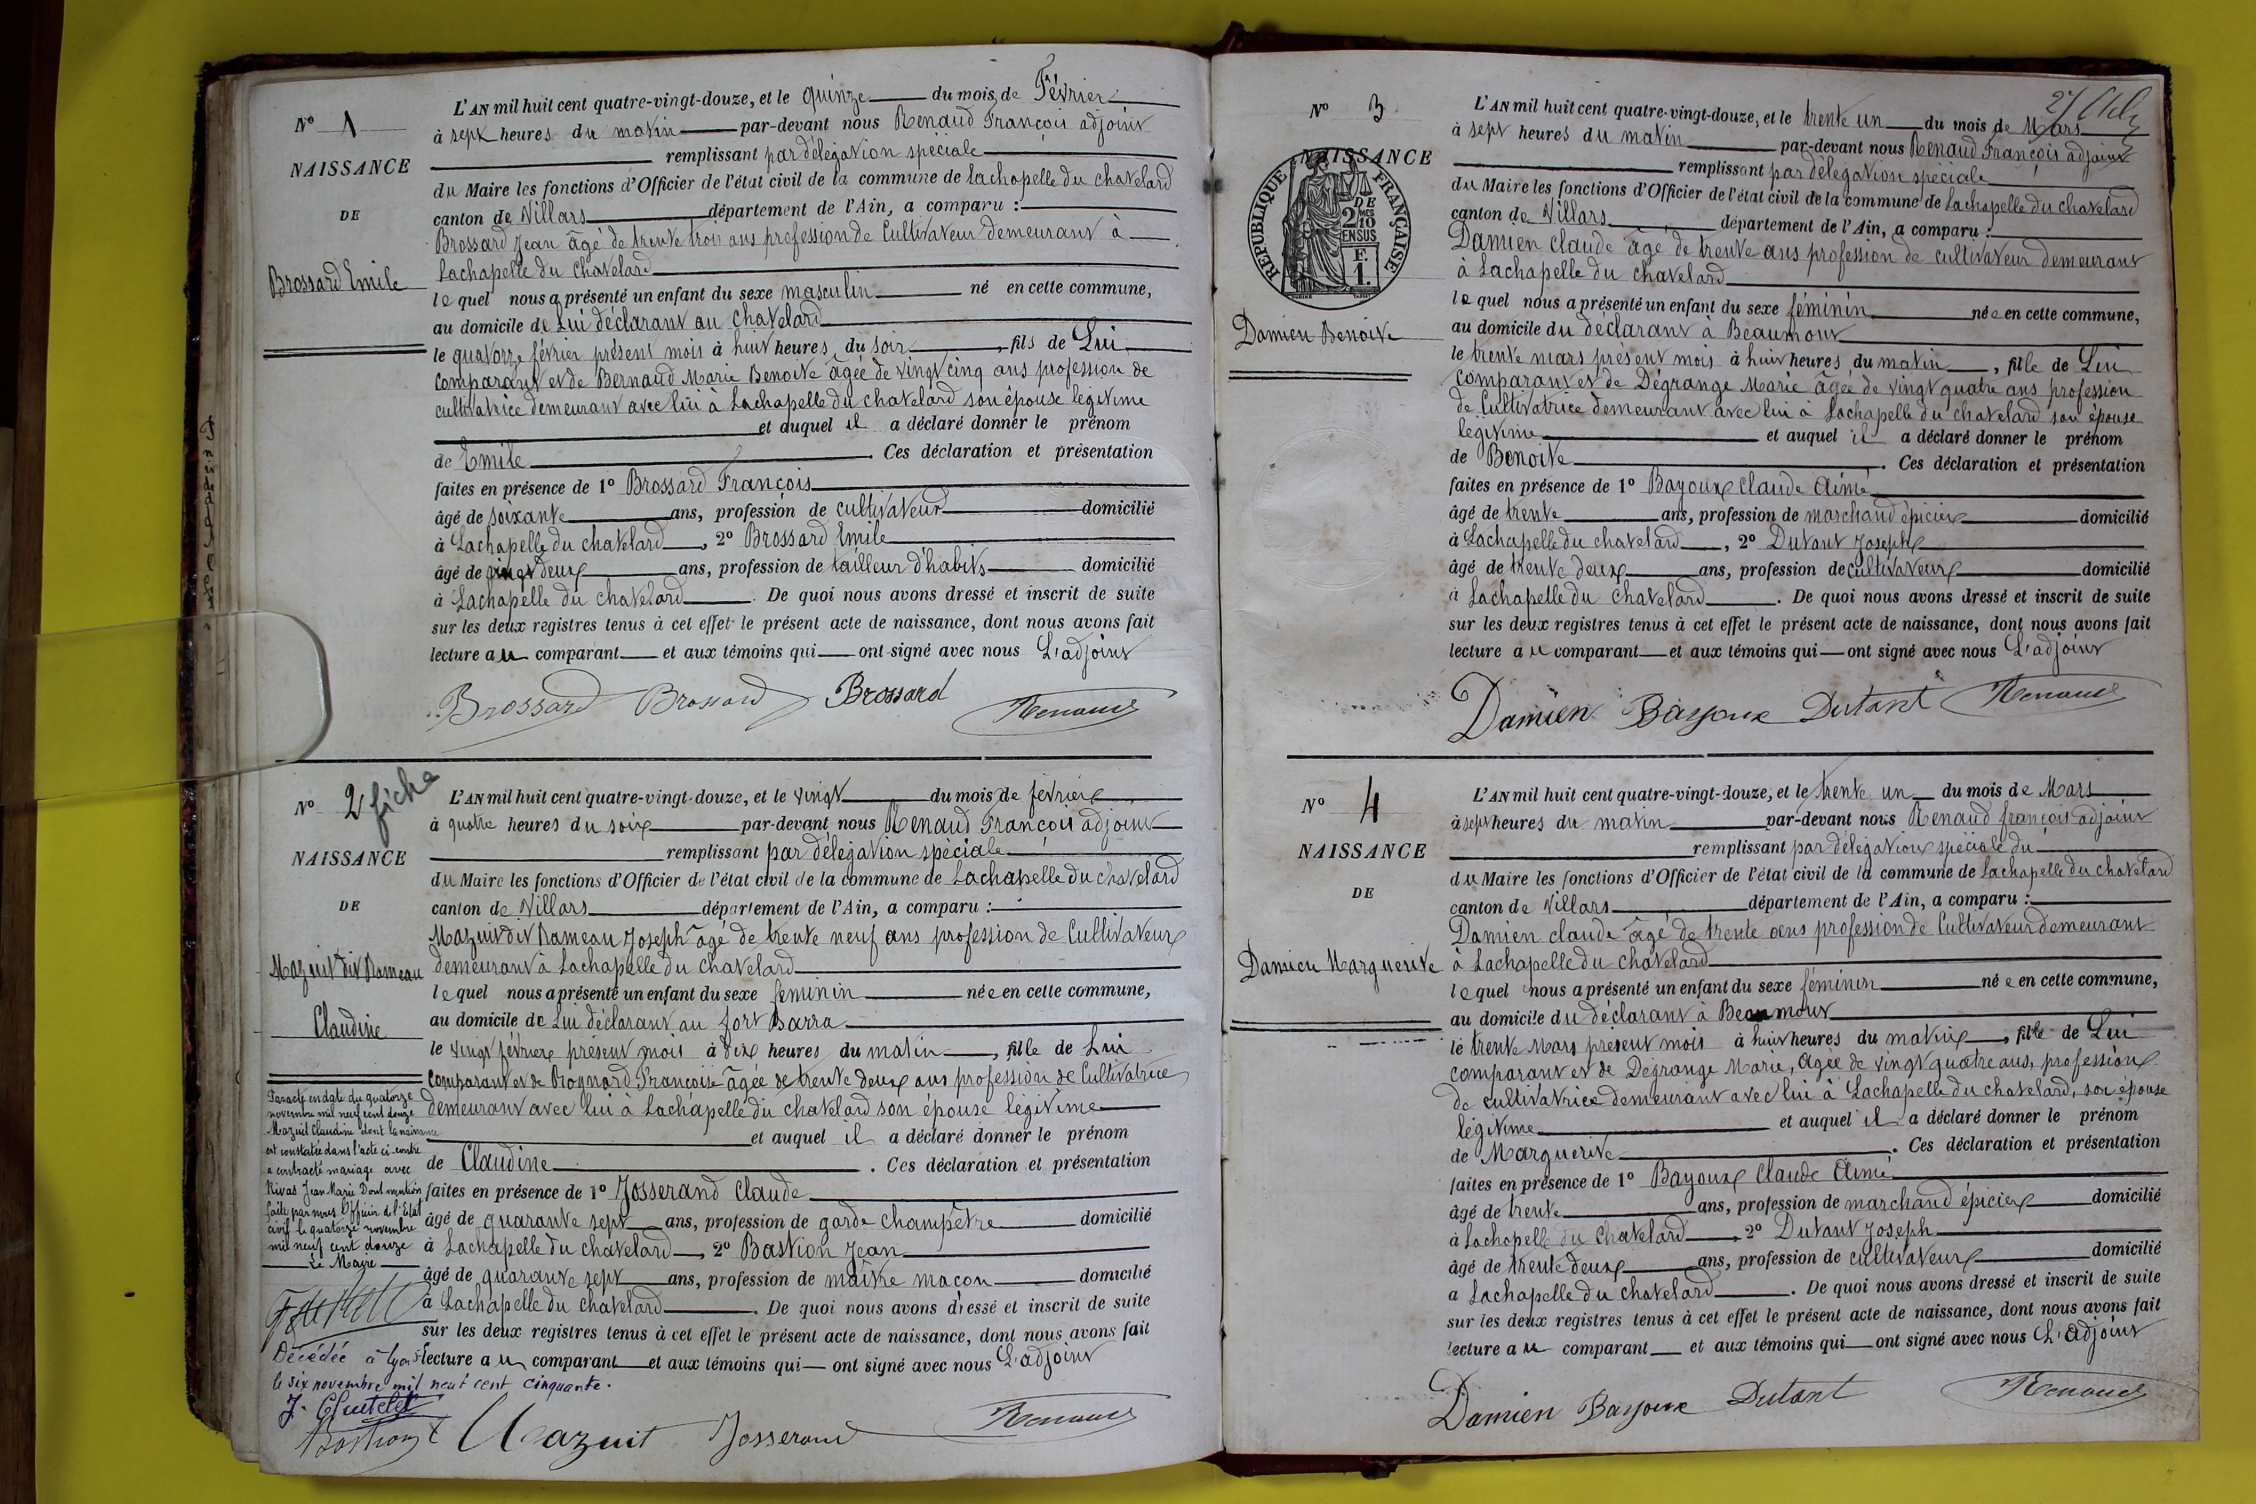 N° 1
NAISSANCE
DE
Brossard Emile
L'AN mil huit cent quatre-vingt-douze, et le quinze du mois de Février
à sept heures du matin par-devant nous Renaud François adjoint
remplissant par délégation spéciale
du Maire les fonctions d'Officier de l'état civil de la commune de Lachapelle du chatelard
canton de Villars département de l'Ain, a comparu :
Brossard Jean âgé de trente trois ans profession de Cultivateur demeurant à
Lachapelle du chatelard
lequel nous a présenté un enfant du sexe masculin né en cette commune,
au domicile de Lui déclarant au chatelard
le quatorze février présent mois à huit heures du soir, fils de Lui
comparant et de Bernaud Marie Benoite âgée de vingt cinq ans profession de
cultivatrice demeurant avec lui à Lachapelle du chatelard son épouse légitime
et auquel il a déclaré donner le prénom
de Emile. Ces déclaration et présentation
faites en présence de 1° Brossard François
âgé de soixante ans, profession de cultivateur domicilié
à Lachapelle du chatelard, 2° Brossard Emile
âgé de vingt deux ans, profession de tailleur d'habits domicilié
à Lachapelle du chatelard. De quoi nous avons dressé et inscrit de suite
sur les deux registres tenus à cet effet le présent acte de naissance, dont nous avons fait
lecture au comparant et aux témoins qui ont signé avec nous L'adjoint
Brossard Brossard Brossard Renaud
N° 2 fiche
NAISSANCE
DE
Mazuit dit Rameau
Claudine
Par acte en date du quatorze
novembre mil neuf cent douze
Mazuit Claudine dont la naissance
est constatée dans l'acte ci-contre
a contracté mariage avec
Rivas Jean Marie Dont mention
faite par nous Officier de l'Etat
civil le quatorze novembre
mil neuf cent douze
Le Maire
Décédée à Lyon
le six novembre mil neuf cent cinquante.
L'AN mil huit cent quatre-vingt-douze, et le vingt du mois de février
à quatre heures du soir par-devant nous Renaud François adjoint
remplissant par délégation spéciale
du Maire les fonctions d'Officier de l'état civil de la commune de Lachapelle du chatelard
canton de Villars département de l'Ain, a comparu :
Mazuit dit Rameau Joseph âgé de trente neuf ans profession de Cultivateur
demeurant à Lachapelle du chatelard
lequel nous a présenté un enfant du sexe féminin née en cette commune,
au domicile de Lui déclarant au fort Barra
le vingt février présent mois à dix heures du matin, fille de Lui
comparant et de Rognard Françoise âgée de trente deux ans profession de Cultivatrice
demeurant avec lui à Lachapelle du chatelard son épouse légitime
et auquel il a déclaré donner le prénom
de Claudine. Ces déclaration et présentation
faites en présence de 1° Josserand Claude
âgé de quarante sept ans, profession de garde champêtre domicilié
à Lachapelle du chatelard, 2° Bastion Jean
âgé de quarante sept ans, profession de maître maçon domicilié
à Lachapelle du chatelard. De quoi nous avons dressé et inscrit de suite
sur les deux registres tenus à cet effet le présent acte de naissance, dont nous avons fait
lecture au comparant et aux témoins qui ont signé avec nous L'adjoint
Bastion Mazuit Josserand Renaud
N° 3
NAISSANCE
RÉPUBLIQUE FRANÇAISE
DE
2 MES 10
EN SUS
F.
1.
Damien Benoite
L'AN mil huit cent quatre-vingt-douze, et le trente un du mois de Mars
à sept heures du matin par-devant nous Renaud François adjoint
remplissant par délégation spéciale
du Maire les fonctions d'Officier de l'état civil de la commune de Lachapelle du chatelard
canton de Villars département de l'Ain, a comparu :
Damien Claude âgé de trente ans profession de cultivateur demeurant
à Lachapelle du chatelard
lequel nous a présenté un enfant du sexe féminin née en cette commune,
au domicile du déclarant à Beaumont
le trente mars présent mois à huit heures du matin, fille de Lui
comparant et de Dégrange Marie âgée de vingt quatre ans profession
de Cultivatrice demeurant avec lui à Lachapelle du chatelard son épouse
légitime et auquel il a déclaré donner le prénom
de Benoite. Ces déclaration et présentation
faites en présence de 1° Bayoux Claude Aimé
âgé de trente ans, profession de marchand épicier domicilié
à Lachapelle du chatelard, 2° Dutant Joseph
âgé de trente deux ans, profession de cultivateur domicilié
à Lachapelle du chatelard. De quoi nous avons dressé et inscrit de suite
sur les deux registres tenus à cet effet le présent acte de naissance, dont nous avons fait
lecture au comparant et aux témoins qui ont signé avec nous L'adjoint
Damien Bayoux Dutant Renaud
N° 4
NAISSANCE
DE
Damien Marguerite
L'AN mil huit cent quatre-vingt-douze, et le trente un du mois de Mars
à sept heures du matin par-devant nous Renaud françois adjoint
remplissant par délégation spéciale du
du Maire les fonctions d'Officier de l'état civil de la commune de Lachapelle du chatelard
canton de Villars département de l'Ain, a comparu :
Damien Claude âgé de trente ans profession de Cultivateur demeurant
à Lachapelle du chatelard
lequel nous a présenté un enfant du sexe féminin née en cette commune,
au domicile du déclarant à Beaumont
le trente Mars présent mois à huit heures du matin, fille de Lui
comparant et de Dégrange Marie, âgée de vingt quatre ans, profession
de cultivatrice demeurant avec lui à Lachapelle du chatelard, son épouse
légitime et auquel il a déclaré donner le prénom
de Marguerite. Ces déclaration et présentation
faites en présence de 1° Bayoux Claude Aimé
âgé de trente ans, profession de marchand épicier domicilié
à Lachapelle du chatelard, 2° Dutant Joseph
âgé de trente deux ans, profession de cultivateur domicilié
a Lachapelle du chatelard. De quoi nous avons dressé et inscrit de suite
sur les deux registres tenus à cet effet le présent acte de naissance, dont nous avons fait
lecture au comparant et aux témoins qui ont signé avec nous L'Adjoint
Damien Bayoux Dutant Renaud